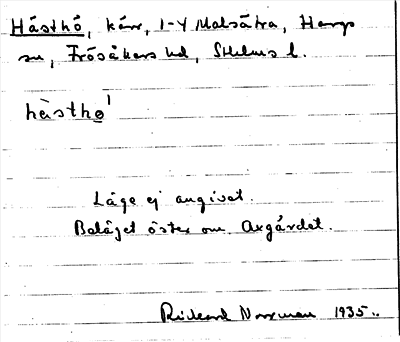 Hästhö, kärr, 1-4 Malsätra, Hargs
sn, Frösåkers hd, Sthlms l.
hàstho̲ˈ
Läge ej angivet.
Beläget öster om Axgärdet.
Rickard Norrman 1935..